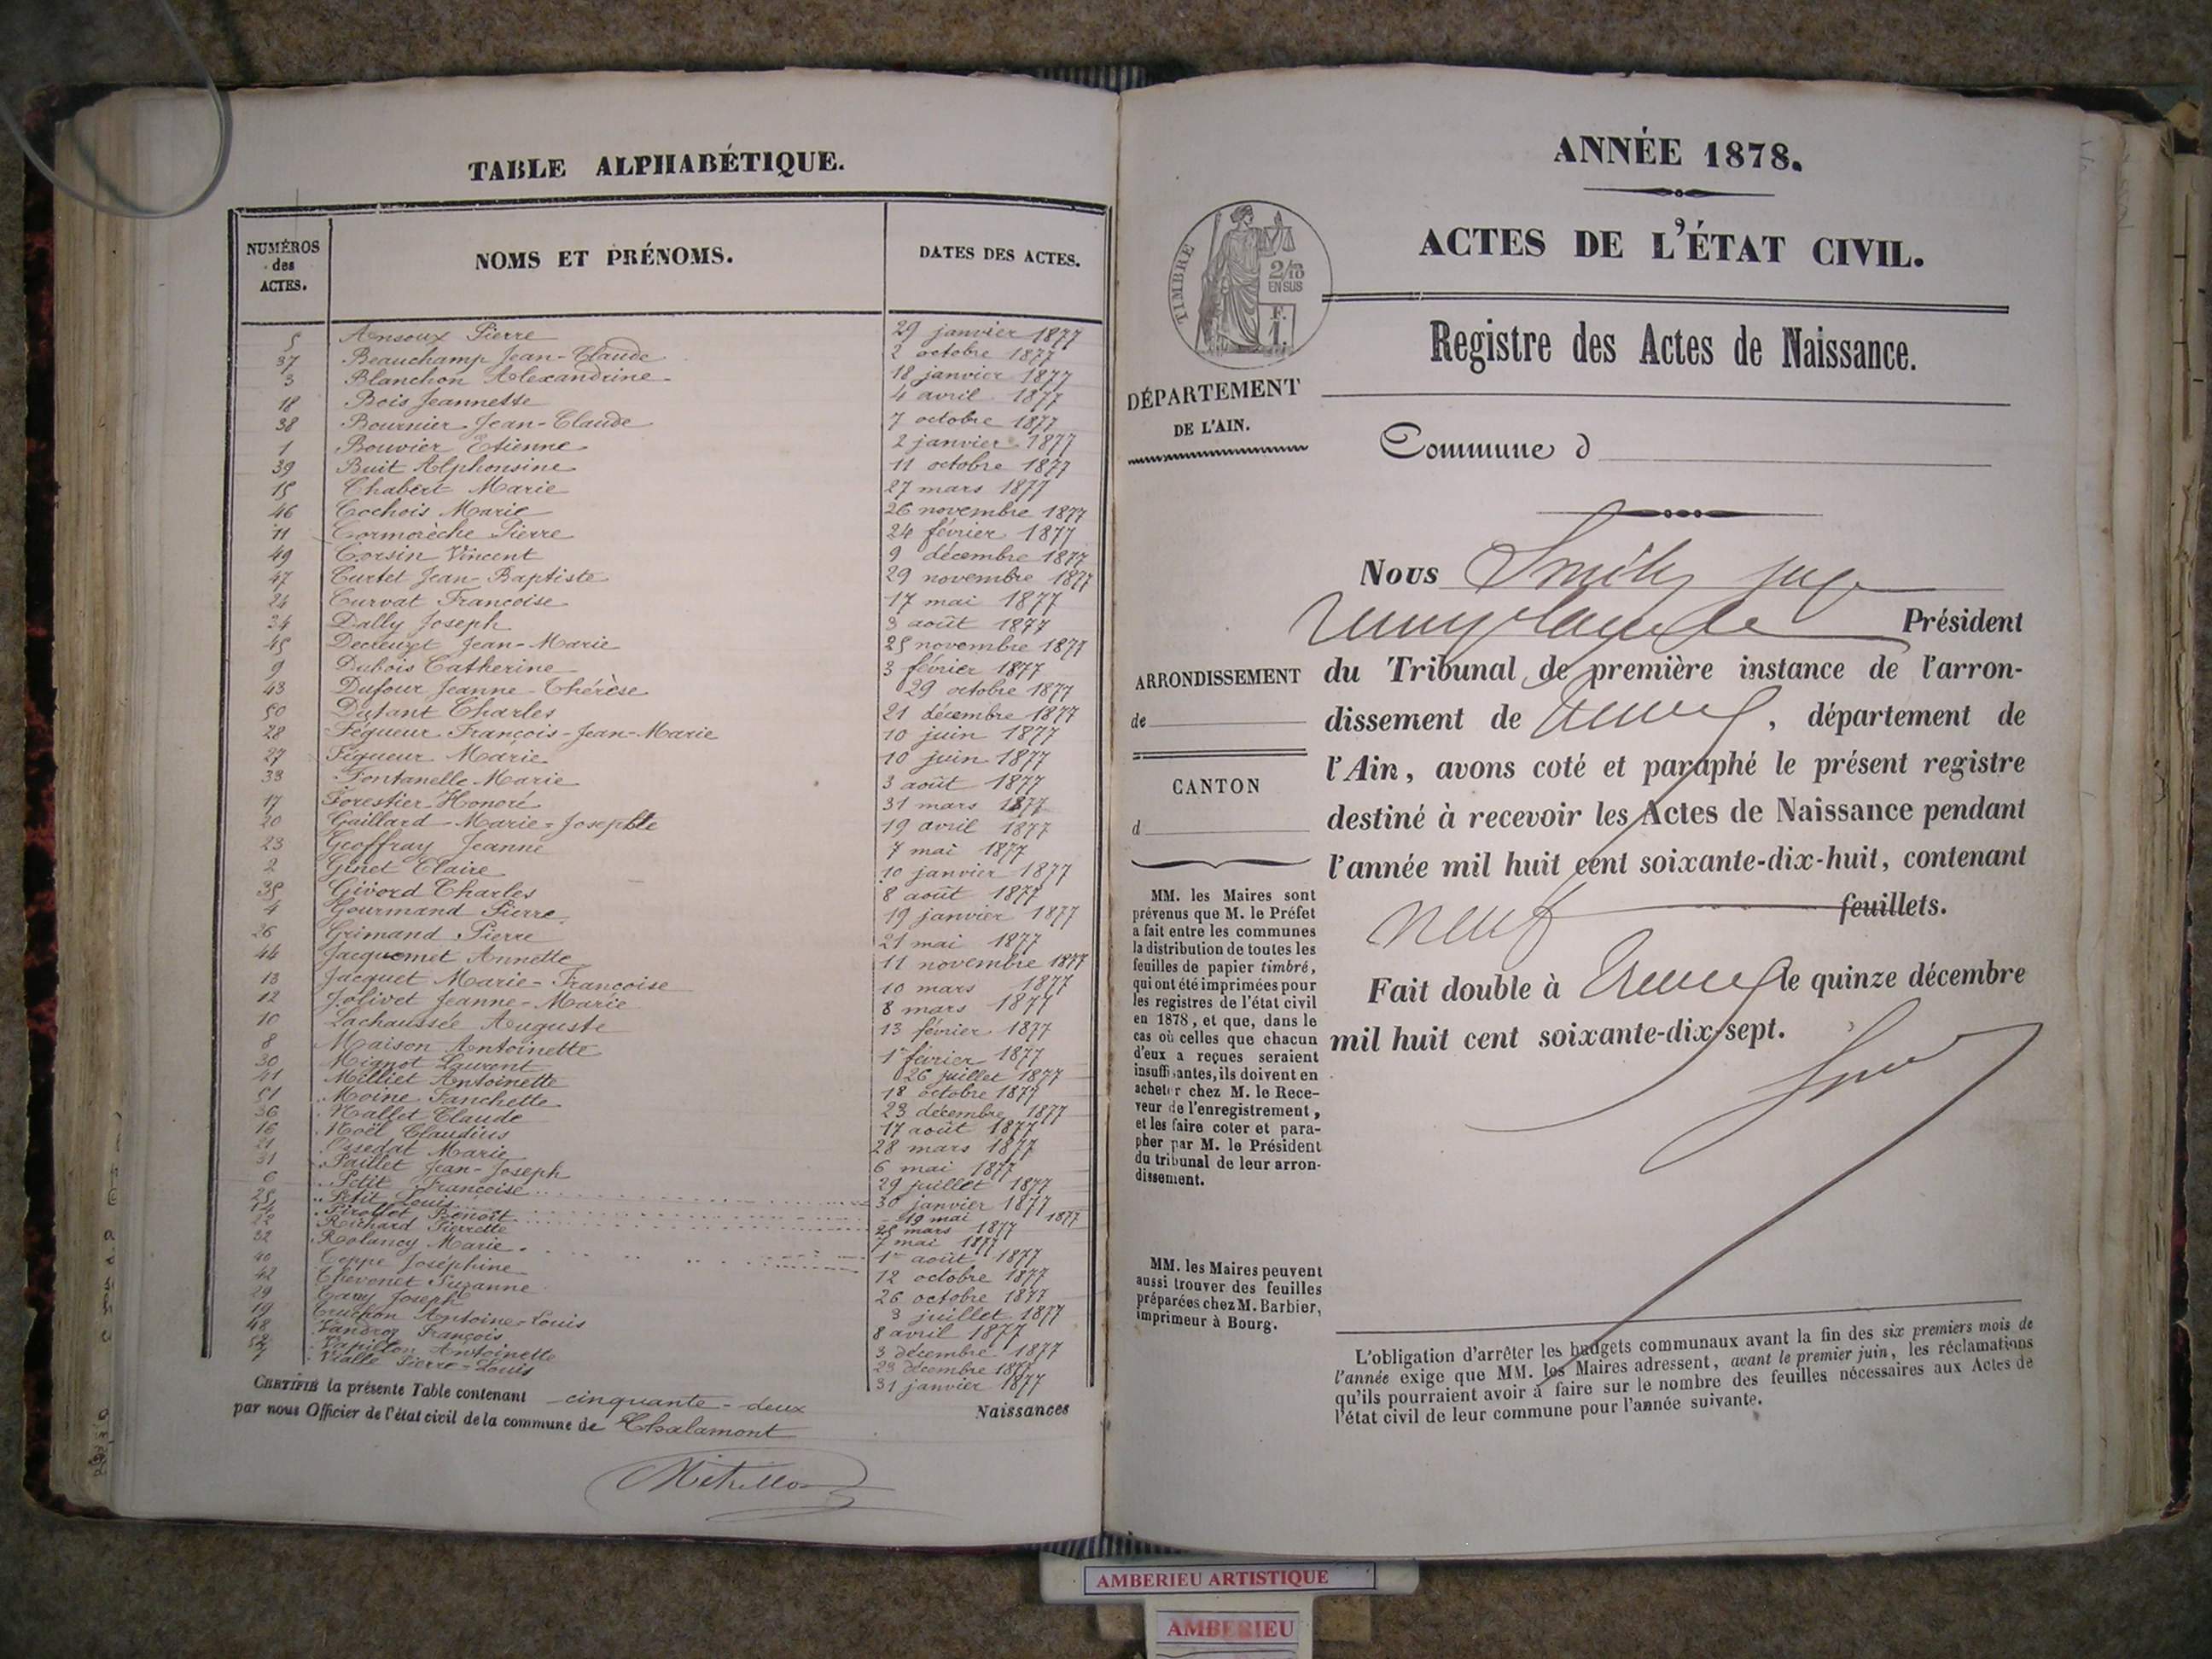 TABLE ALPHABÉTIQUE.
NUMÉROS des ACTES. NOMS ET PRÉNOMS. DATES DES ACTES.
5 Ansoux Pierre 29 janvier 1877
37 Beauchamp Jean-Claude 2 octobre 1877
3 Blanchon Alexandrine 18 janvier 1877
18 Bois Jeannette 4 avril 1877
38 Bournier Jean-Claude 7 octobre 1877
1 Bouvier Etienne 2 janvier 1877
39 Buit Alphonsine 11 octobre 1877
15 Chabert Marie 27 mars 1877
46 Cochois Marie 26 novembre 1877
11 Cormorèche Pierre 24 février 1877
49 Corsin Vincent 9 décembre 1877
47 Curtet Jean-Baptiste 29 novembre 1877
24 Curvat Françoise 17 mai 1877
34 Dally Joseph 3 août 1877
45 Jean-Marie 25 novembre 1877
9 Dubois Catherine 3 février 1877
43 Dufour Jeanne-Thérèse 29 octobre 1877
50 Dutant Charles 21 décembre 1877
28 Féqueur François-Jean-Marie 10 juin 1877
27 Féqueur Marie 10 juin 1877
33 Fontanelle Marie 3 août 1877
17 Forestier Honoré 31 mars 1877
20 Gaillard Marie-Josephte 19 avril 1877
23 Geoffray Jeanne 7 mai 1877
2 Ginet Claire 10 janvier 1877
35 Givord Charles 8 août 1877
4 Gourmand Pierre 19 janvier 1877
26 Grimand Pierre 21 mai 1877
44 Jacquemet Annette 11 novembre 1877
13 Jacquet Marie-Françoise 10 mars 1877
12 Jolivet Jeanne-Marie 8 mars 1877
10 Lachaussée Auguste 13 février 1877
8 Maison Antoinette 1er février 1877
30 Mignot Laurent 26 juillet 1877
41 Milliet Antoinette 18 octobre 1877
51 Moine Fanchette 23 décembre 1877
36 Nallet Claude 17 août 1877
16 Noël Claudius 28 mars 1877
21 Ossedat Marie 6 mai 1877
31 Paillet Jean-Joseph 29 juillet 1877
6 Petit Françoise 30 janvier 1877
25 Petit Louis 19 mai 1877
14 Pirollet Benoît 25 mars 1877
22 Reichard Pierrette 7 mai 1877
32 Rolancy Marie 1er août 1877
40 Teppe Joséphine 12 octobre 1877
42 Thevenet Suzanne 26 octobre 1877
29 Joseph 3 juillet 1877
19 Truchon Antoine-Louis 8 avril 1877
48 François 3 décembre 1877
52 Vapillon Antoinette 23 décembre 1877
7 Vialle Pierre-Louis 31 janvier 1877
CERTIFIÉ la présente Table contenant cinquante-deux Naissances
par nous Officier de l'état civil de la commune de Chalamont
ANNÉE 1878.
ACTES DE L'ÉTAT CIVIL.
TIMBRE
2/10
EN SUS
F.
1.
Registre des Actes de Naissance.
DÉPARTEMENT
DE L'AIN.
Commune d
Nous Smith juge
Président
ARRONDISSEMENT
de
CANTON
d
du Tribunal de première instance de l'arron-
dissement de Trévoux, département de
l'Ain, avons coté et paraphé le présent registre
destiné à recevoir les Actes de Naissance pendant
l'année mil huit cent soixante-dix-huit, contenant
neuf feuillets.
Fait double à Trévoux le quinze décembre
mil huit cent soixante-dix-sept.
MM. les Maires sont
prévenus que M. le Préfet
a fait entre les communes
la distribution de toutes les
feuilles de papier timbré,
qui ont été imprimées pour
les registres de l'état civil
en 1878, et que, dans le
cas où celles que chacun
d'eux a reçues seraient
insuffisantes, ils doivent en
acheter chez M. le Rece-
veur de l'enregistrement,
et les faire coter et para-
pher par M. le Président
du tribunal de leur arron-
dissement.
MM. les Maires peuvent
aussi trouver des feuilles
préparées chez M. Barbier,
imprimeur à Bourg.
L'obligation d'arrêter les budgets communaux avant la fin des six premiers mois de
l'année exige que MM. les Maires adressent, avant le premier juin, les réclamations
qu'ils pourraient avoir à faire sur le nombre des feuilles nécessaires aux Actes de
l'état civil de leur commune pour l'année suivante.
AMBERIEU ARTISTIQUE
AMBERIEU